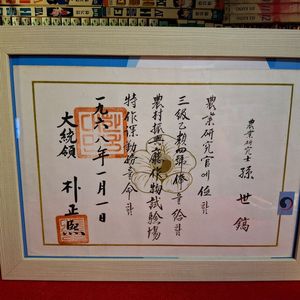 農業研究士 孫世鎬
農業硏究官에任함
三級乙類四號俸을給함
農村振興廳作物試驗場
特作課勤務를命함
一九六八年一月一日
大統領 朴正熙